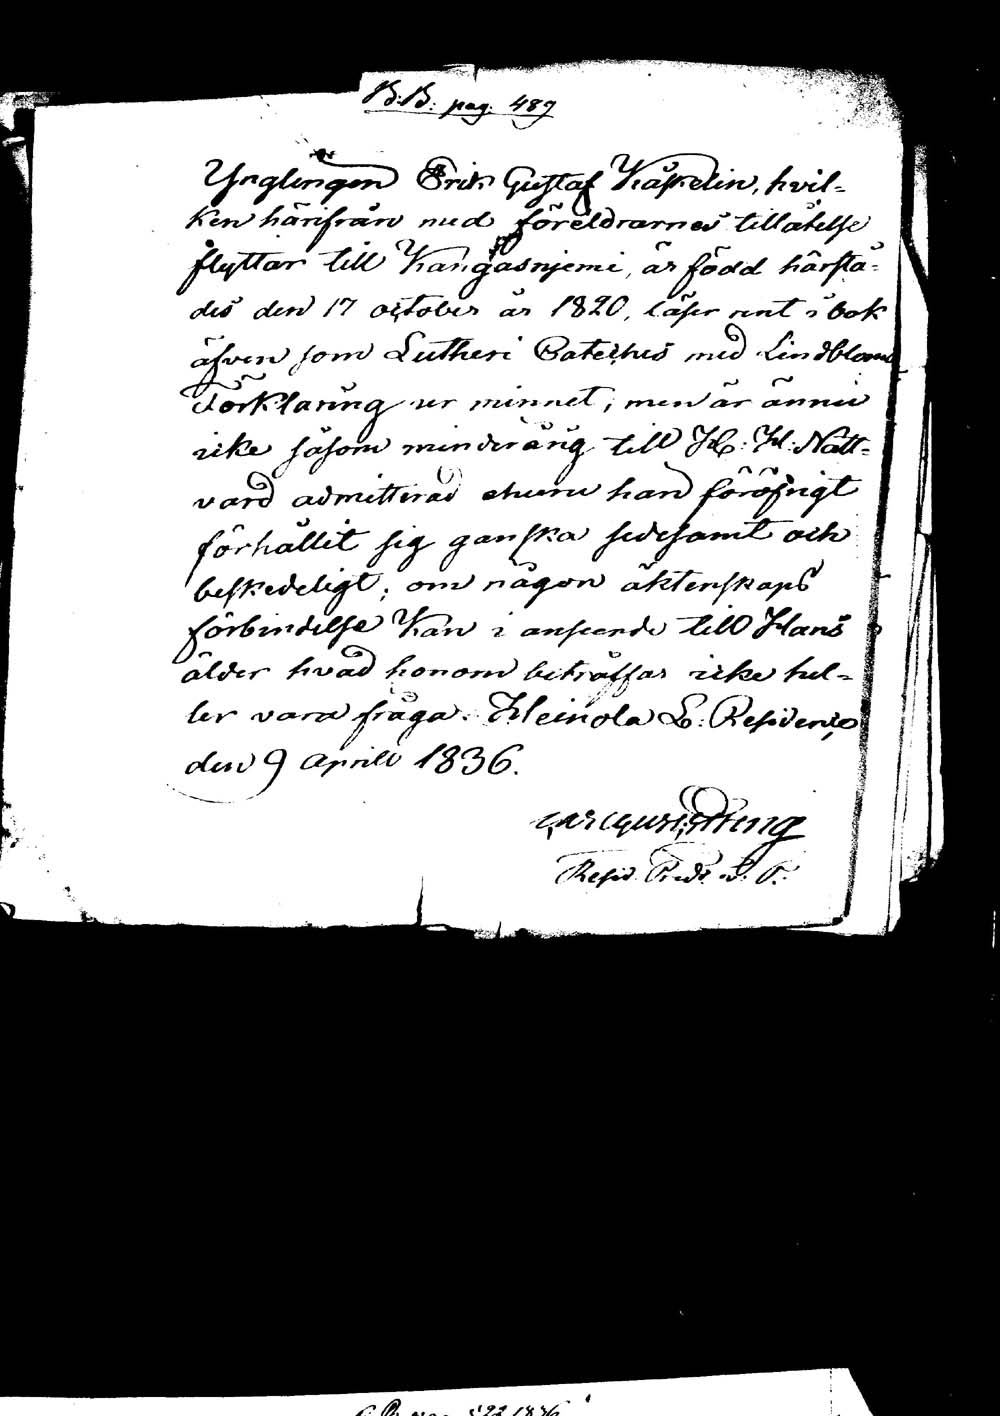 B:B: pag. 489
Ynglingen Erik Gustaf Käpelin, hvil=
ken härifrån med föreldrarnes tillåtelse
flyttar till Kangasnjemi, är född härstä=
des den 17 october år 1820, läser rent i bok
äfven som Lutheri Cateches med Lindbloms
Förklaring ur minnet; men är ännu
icke såsom minderårig till H: H: Natt=
vard admitterad ehuru han föröfrigt
förhållit sig ganska sedesamt och
beskedeligt; om någon äktenskaps
förbindelse kan i anseende till Hans
ålder hvad honom beträffar icke hel=
ler vara fråga. Heinola L: Residence
den 9 Aprill 1836.
Resid. Pred.